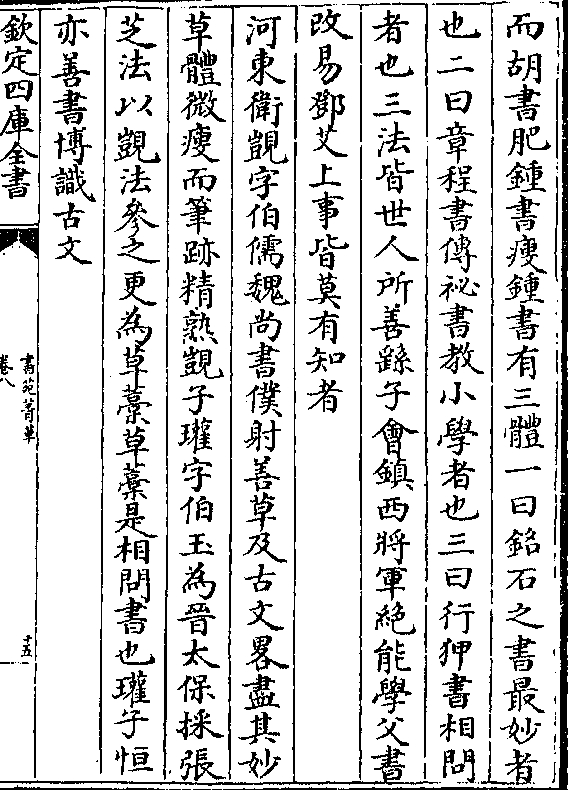 而胡書肥鍾書瘦鍾書有三體一曰銘石之書最妙者
也二曰章程書傳祕書教小學者也三曰行狎書相問
者也三法皆世人所善繇子會鎮西將軍絶能學父書
改易鄧艾上事皆莫有知者
河東衛覬字伯儒魏尚書僕射善草及古文畧盡其妙
草體微瘦而筆跡精熟覬子瓘字伯玉為晉太保採張
芝法以覬法參之更為草藳草藳是相問書也瓘子恒
亦善書博識古文
欽定四庫全書
書苑菁華
卷八
十五